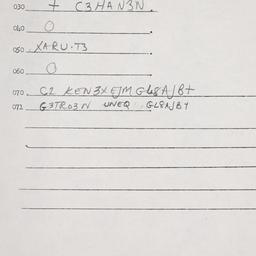 030 + C3HAN3N.
040 O
050 XARU.T3
060 O
070 C2 KEN3XEJM GL8AJBT
071 G3TRO3N UNEQ GL8AJBY